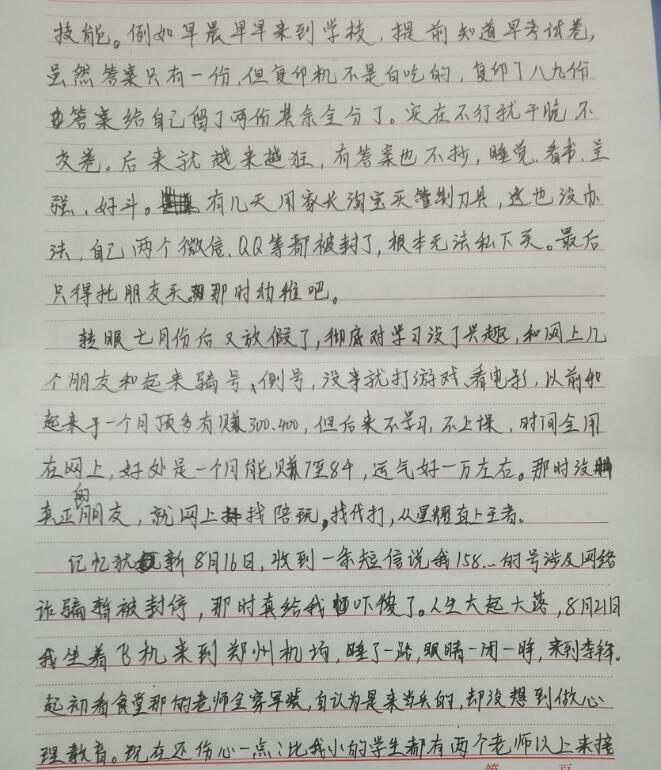 技能。例如早晨早早来到学校，提前知道早考试卷，
虽然答案只有一份，但复印机不是白吃的，复印了八九份
答案给自己留了两份其余全分了。实在不行就干脆不
交卷。后来就越来越狂，有答案也不抄，睡觉、看书、呈
强、好斗。有几天用家长淘宝买管制刀具，这也没办
法，自己两个微信、QQ等都被封了，根本无法私下买。最后
只得托朋友买。那时幼稚吧。
转眼七月份后又放假了，彻底对学习没了兴趣，和网上几
个朋友和起来骗号、倒号，没事就打游戏、看电影，以前如
起来于一个月顶多有赚300.400，但后来不学习，不上课，时间全用
在网上，好处是一个月能赚7至8千，运气好一万左右。那时没
真正的朋友，就网上找陪玩，找代打，从星耀直上王者。
记忆犹新8月16日，收到一条短信说我158...的号涉及网络
诈骗暂被封停，那时真给我吓傻了。人生大起大落，8月21日
我坐着飞机来到郑州机场，睡了一路，眼睛一闭一睁，来到李锋。
起初看食堂那的老师全穿军装，自认为是来当兵的，却没想到做心
理教育。现在还伤心一点：比我小的学生都有两个老师以上来接
第 页